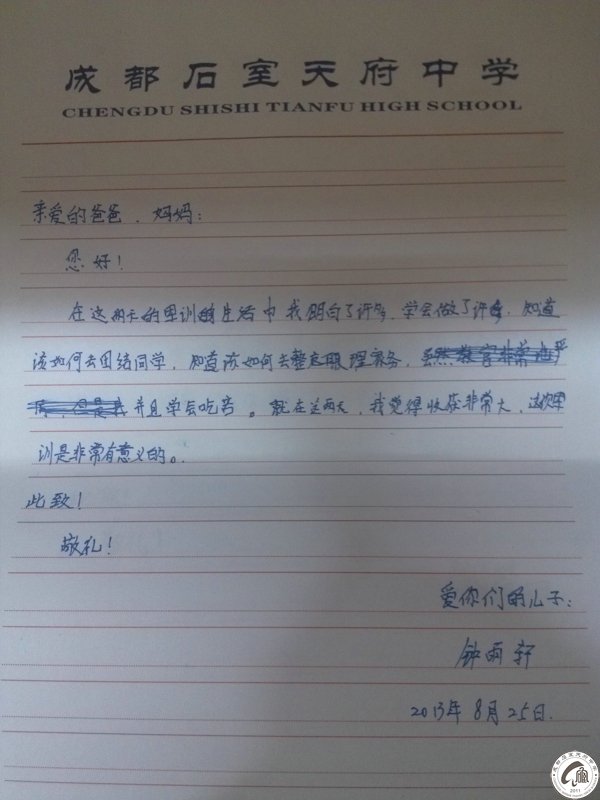 成都石室天府中学
CHENGDU SHISHI TIANFU HIGH SCHOOL
亲爱的爸爸、妈妈:
您好!
在这两天的军训的生活中我明白了许多,学会做了许多,知道
该如何去团结同学,知道该如何去整庭理家务,虽然教官非常严
并且学会吃苦。就在这两天,我觉得收获非常大,这次军
训是非常有意义的。
此致!
敬礼!
爱你们的儿子:
钟雨轩
2013年8月25日.
2011